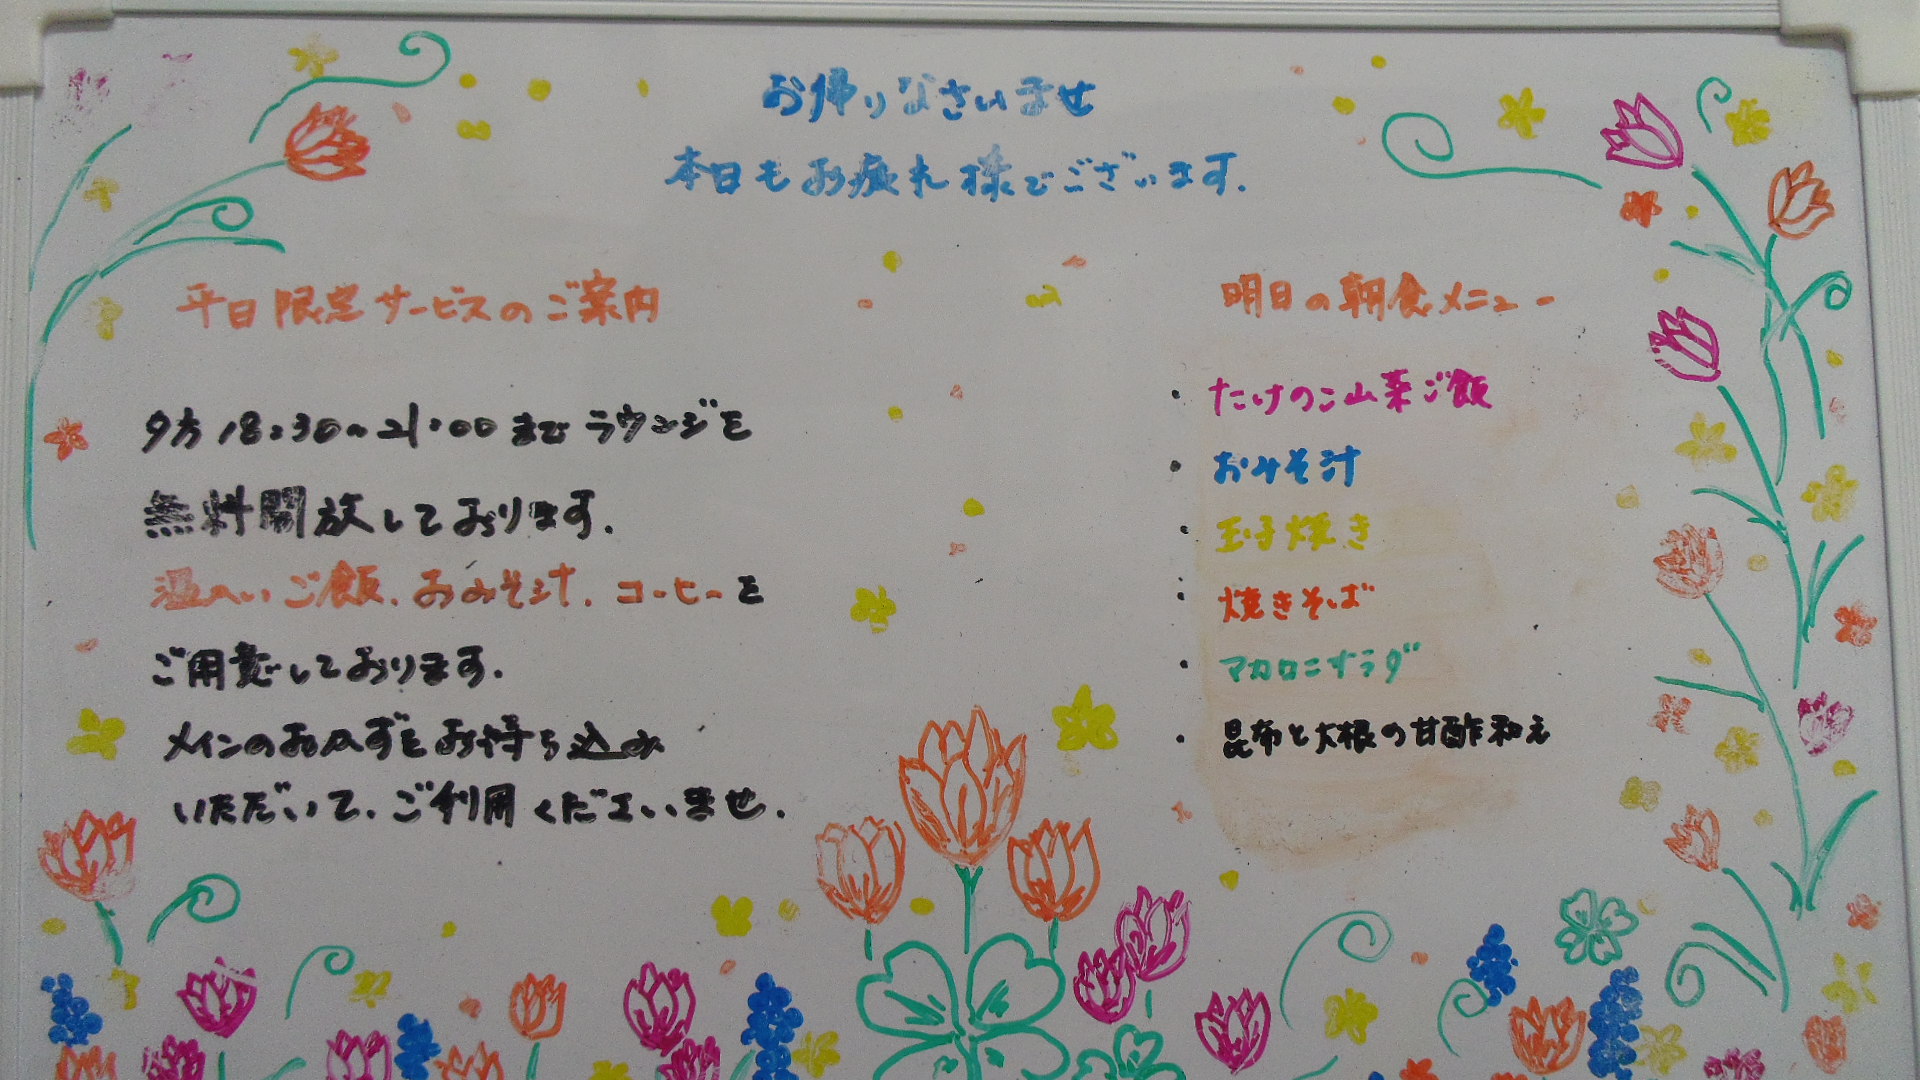 お帰りなさいませ
本日もお疲れ様でございます.
平日限定サービスのご案内
夕方18:30~21:00までラウンジを
無料開放しております.
温かいご飯.おみそ汁.コーヒーを
ご用意しております.
メインのおかずをお持ち込み
いただいて.ご利用くださいませ.
明日の朝食メニュー
・たけのこ山菜ご飯
・おみそ汁
・玉子焼き
・焼きそば
・マカロニサラダ
・昆布と大根の甘酢和え